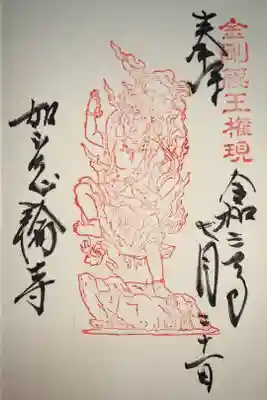 金剛蔵王権現
奉拝
令和三年
七月二十一日
如意輪寺